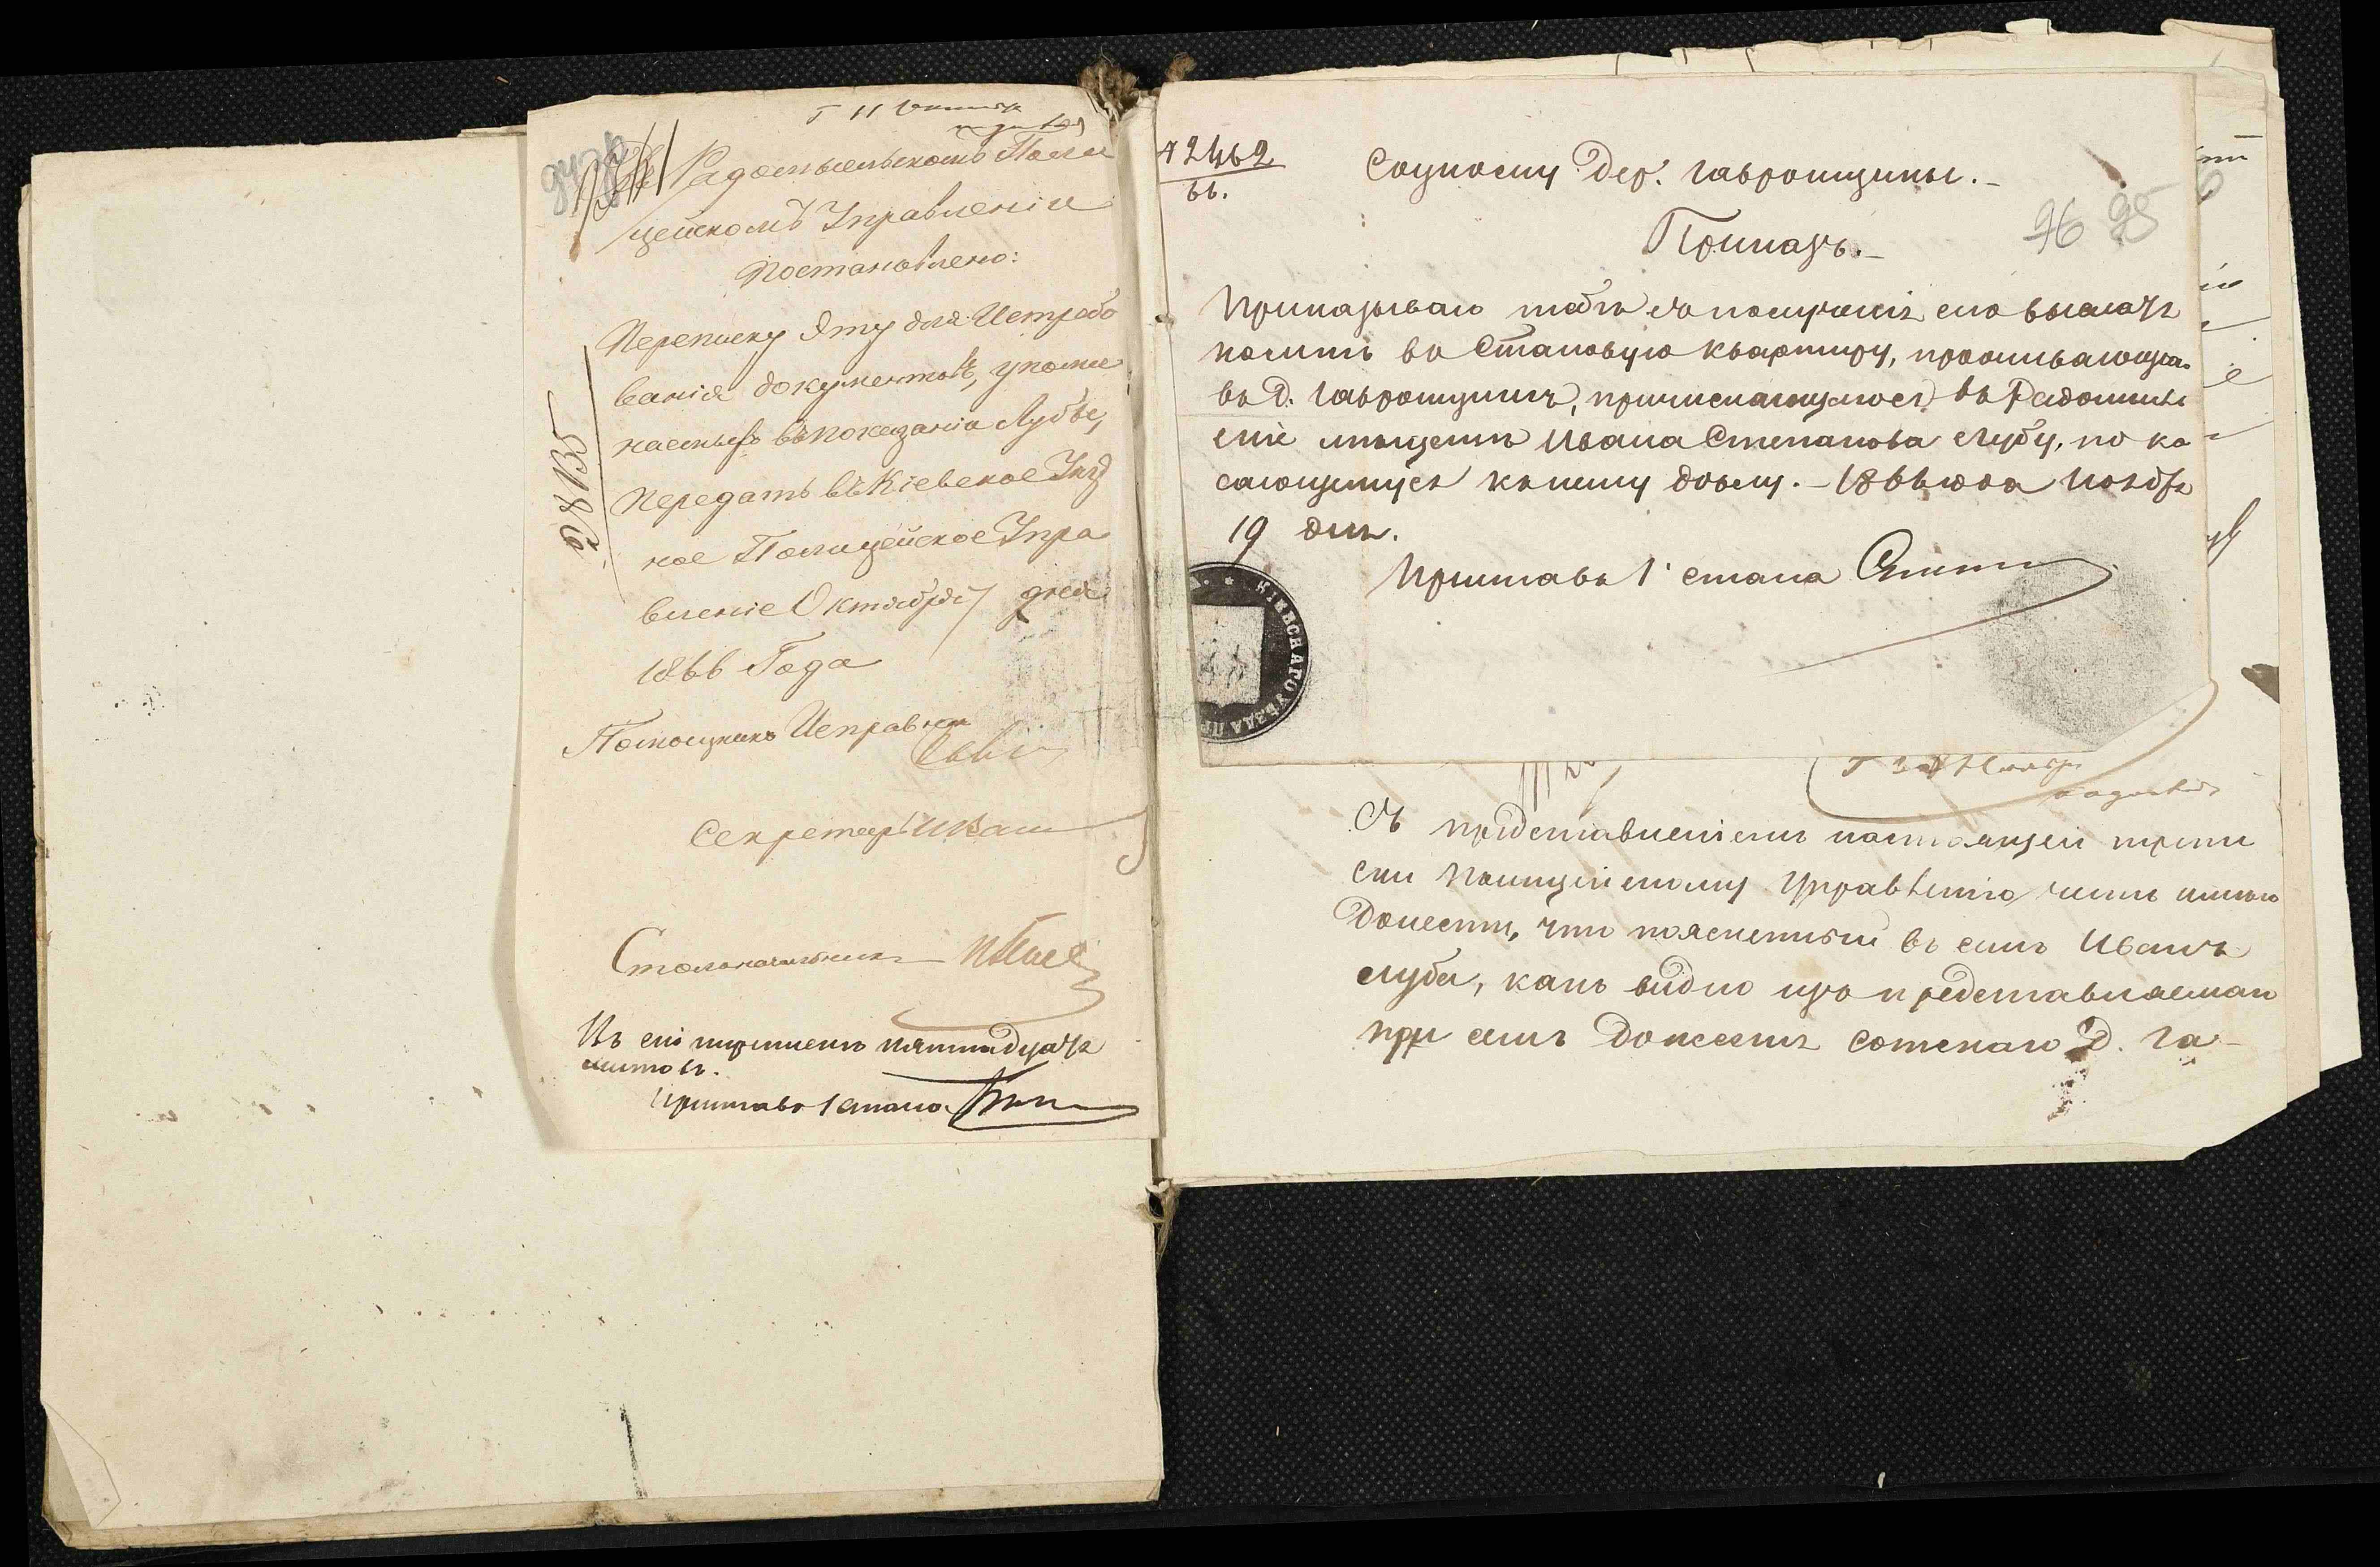 Въ Радомысльскомъ Поли
цейскомъ Управленіи
Постановлено:
Переписку Эту для Истребо
ванія документовъ, упомя
наемыхъ въ показаніи Лубы,
Передать въ Кіевское Уѣзд
ное Полицейское Упра
вленіе Октября 7 дня
1866 Года
Помощникъ Исправника
Секретарь
Столоначальникъ
Въ сей переписки пятнадцать
листовъ.
Приставъ 1 стана
№ 2462
66.
Соцкому Дер. Гавронщины.-
96 95
Приказъ.-
Приказываю тебѣ съ полученія сего выслать
ко мнѣ въ Становую квартиру, проживающаго
въ Д. Гавронщинѣ, причисляющагося въ Радомысль
скіе мѣщане Ивана Степанова Лубу, по ка
сающемуся къ нему дѣлу.- 1866 года Ноября
19 дня.
Приставъ 1 стана
КІЕВСКАГО УѢЗДА ПР
Съ представленіемъ настоящей перепи
ски Полицейскому Управленію честь имѣю
донести, что поясненный въ семъ Иванъ
Луба, какъ видно изъ представляемаго
при семъ донесенія сотскаго Д. Га-